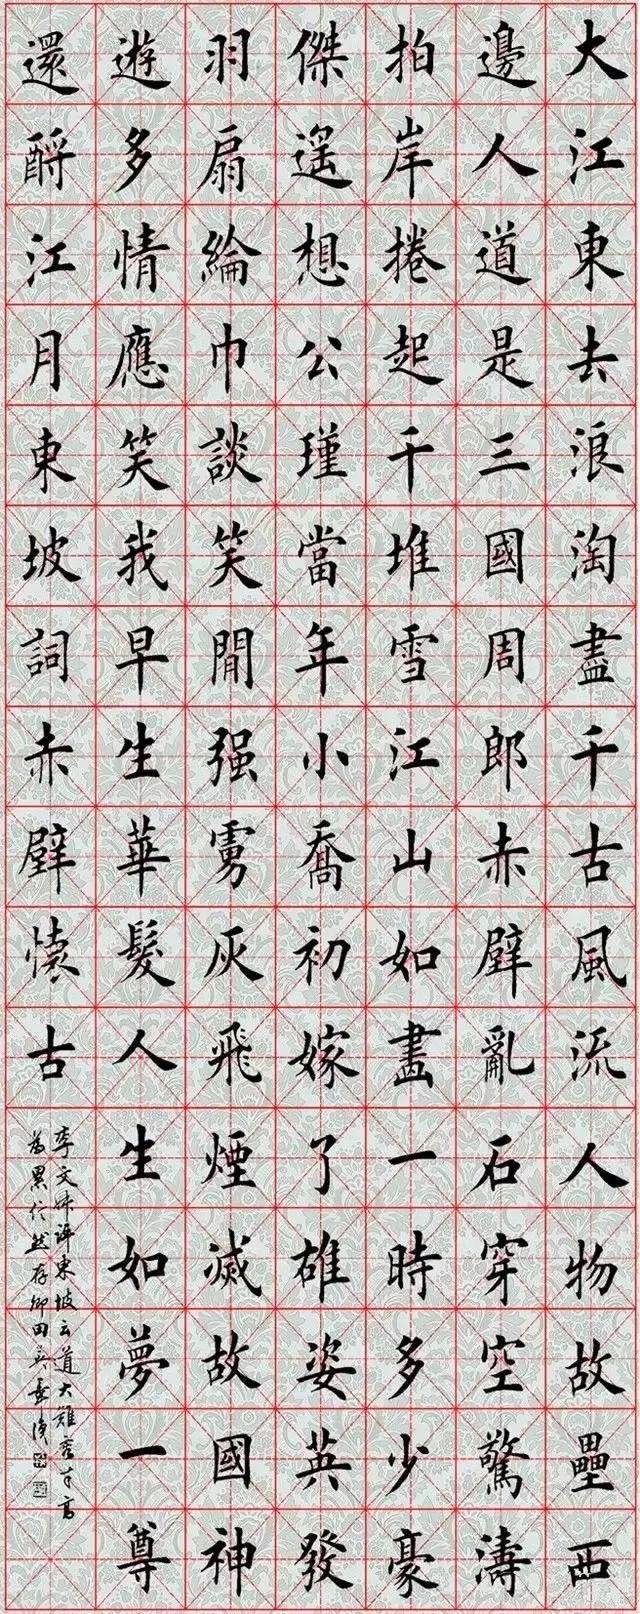 大江東去浪淘盡千古風流人物故壘西
邊人道是三國周郎赤壁亂石穿空驚濤
拍岸捲起千堆雪江山如畫一時多少豪
傑遙想公瑾當年小喬初嫁了雄姿英發
羽扇綸巾談笑間强虜灰飛煙滅故國神
遊多情應笑我早生華髮人生如夢一尊
還酹江月東坡詞赤壁懷古
東坡云道大難容才高
為累信然存卿田英章